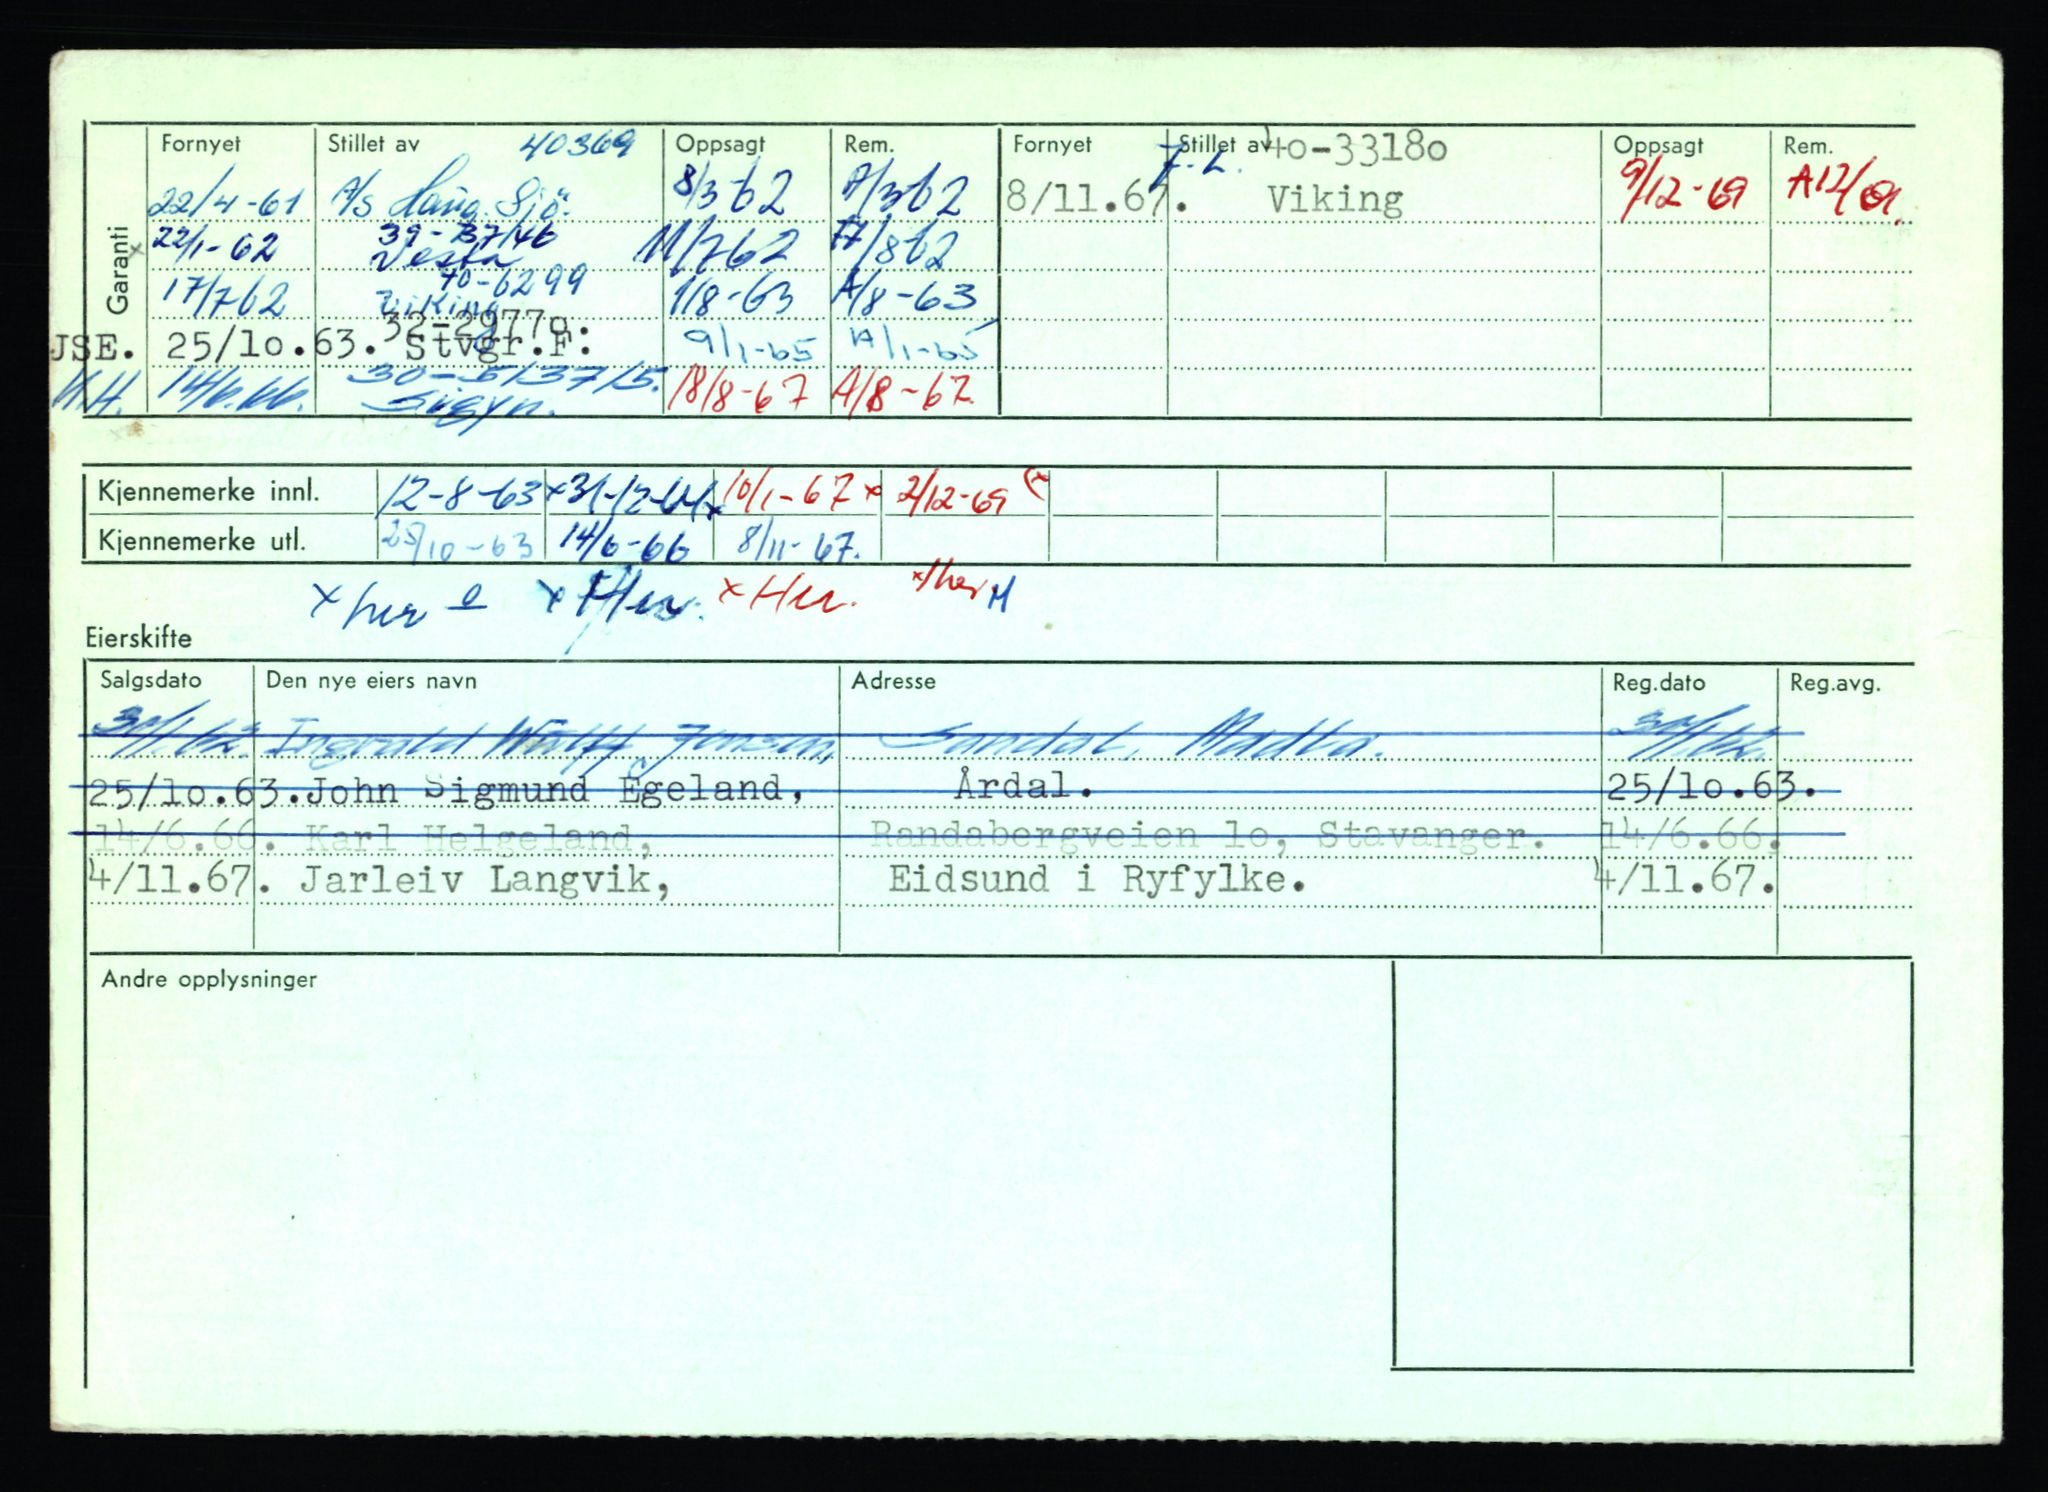 Garanti
Fornyet Stillet av 40369 Oppsagt Rem. Fornyet Stillet av 40-3318o Oppsagt Rem.
22/4-61 A/s Haug. Sjö. 8/3-62 A/3-62 8/11.67. J.L. Viking 9/12-69 A12/69.
22/1-62 39-37146 Vesta 11/7 62 A/8 62
17/7 62 40-6299 Viking 1/8-63 A/8-63
JSE. 25/1o.63. 32-2977o: Stvgr.F: 9/1-65 A/1-65
K.H. 14/6.66. 30-513715. Sigyn. 18/8-67 A/8-67
Kjennemerke innl. 12-8-63 x 31-12-64 x 10/1-67 x 2/12-69 (x
Kjennemerke utl. 25/10-63 14/6-66 8/11-67.
x her x Her. x Her. x her M
Eierskifte
Salgsdato Den nye eiers navn Adresse Reg.dato Reg.avg.
30/1.62. Ingvald Wulff Jensen, Sundal, Madla. 30/1.62.
25/1o.63. John Sigmund Egeland, Årdal. 25/1o.63.
14/6.66. Karl Helgeland, Randabergveien 1o, Stavanger. 14/6.66.
4/11.67. Jarleiv Langvik, Eidsund i Ryfylke. 4/11.67.
Andre opplysninger